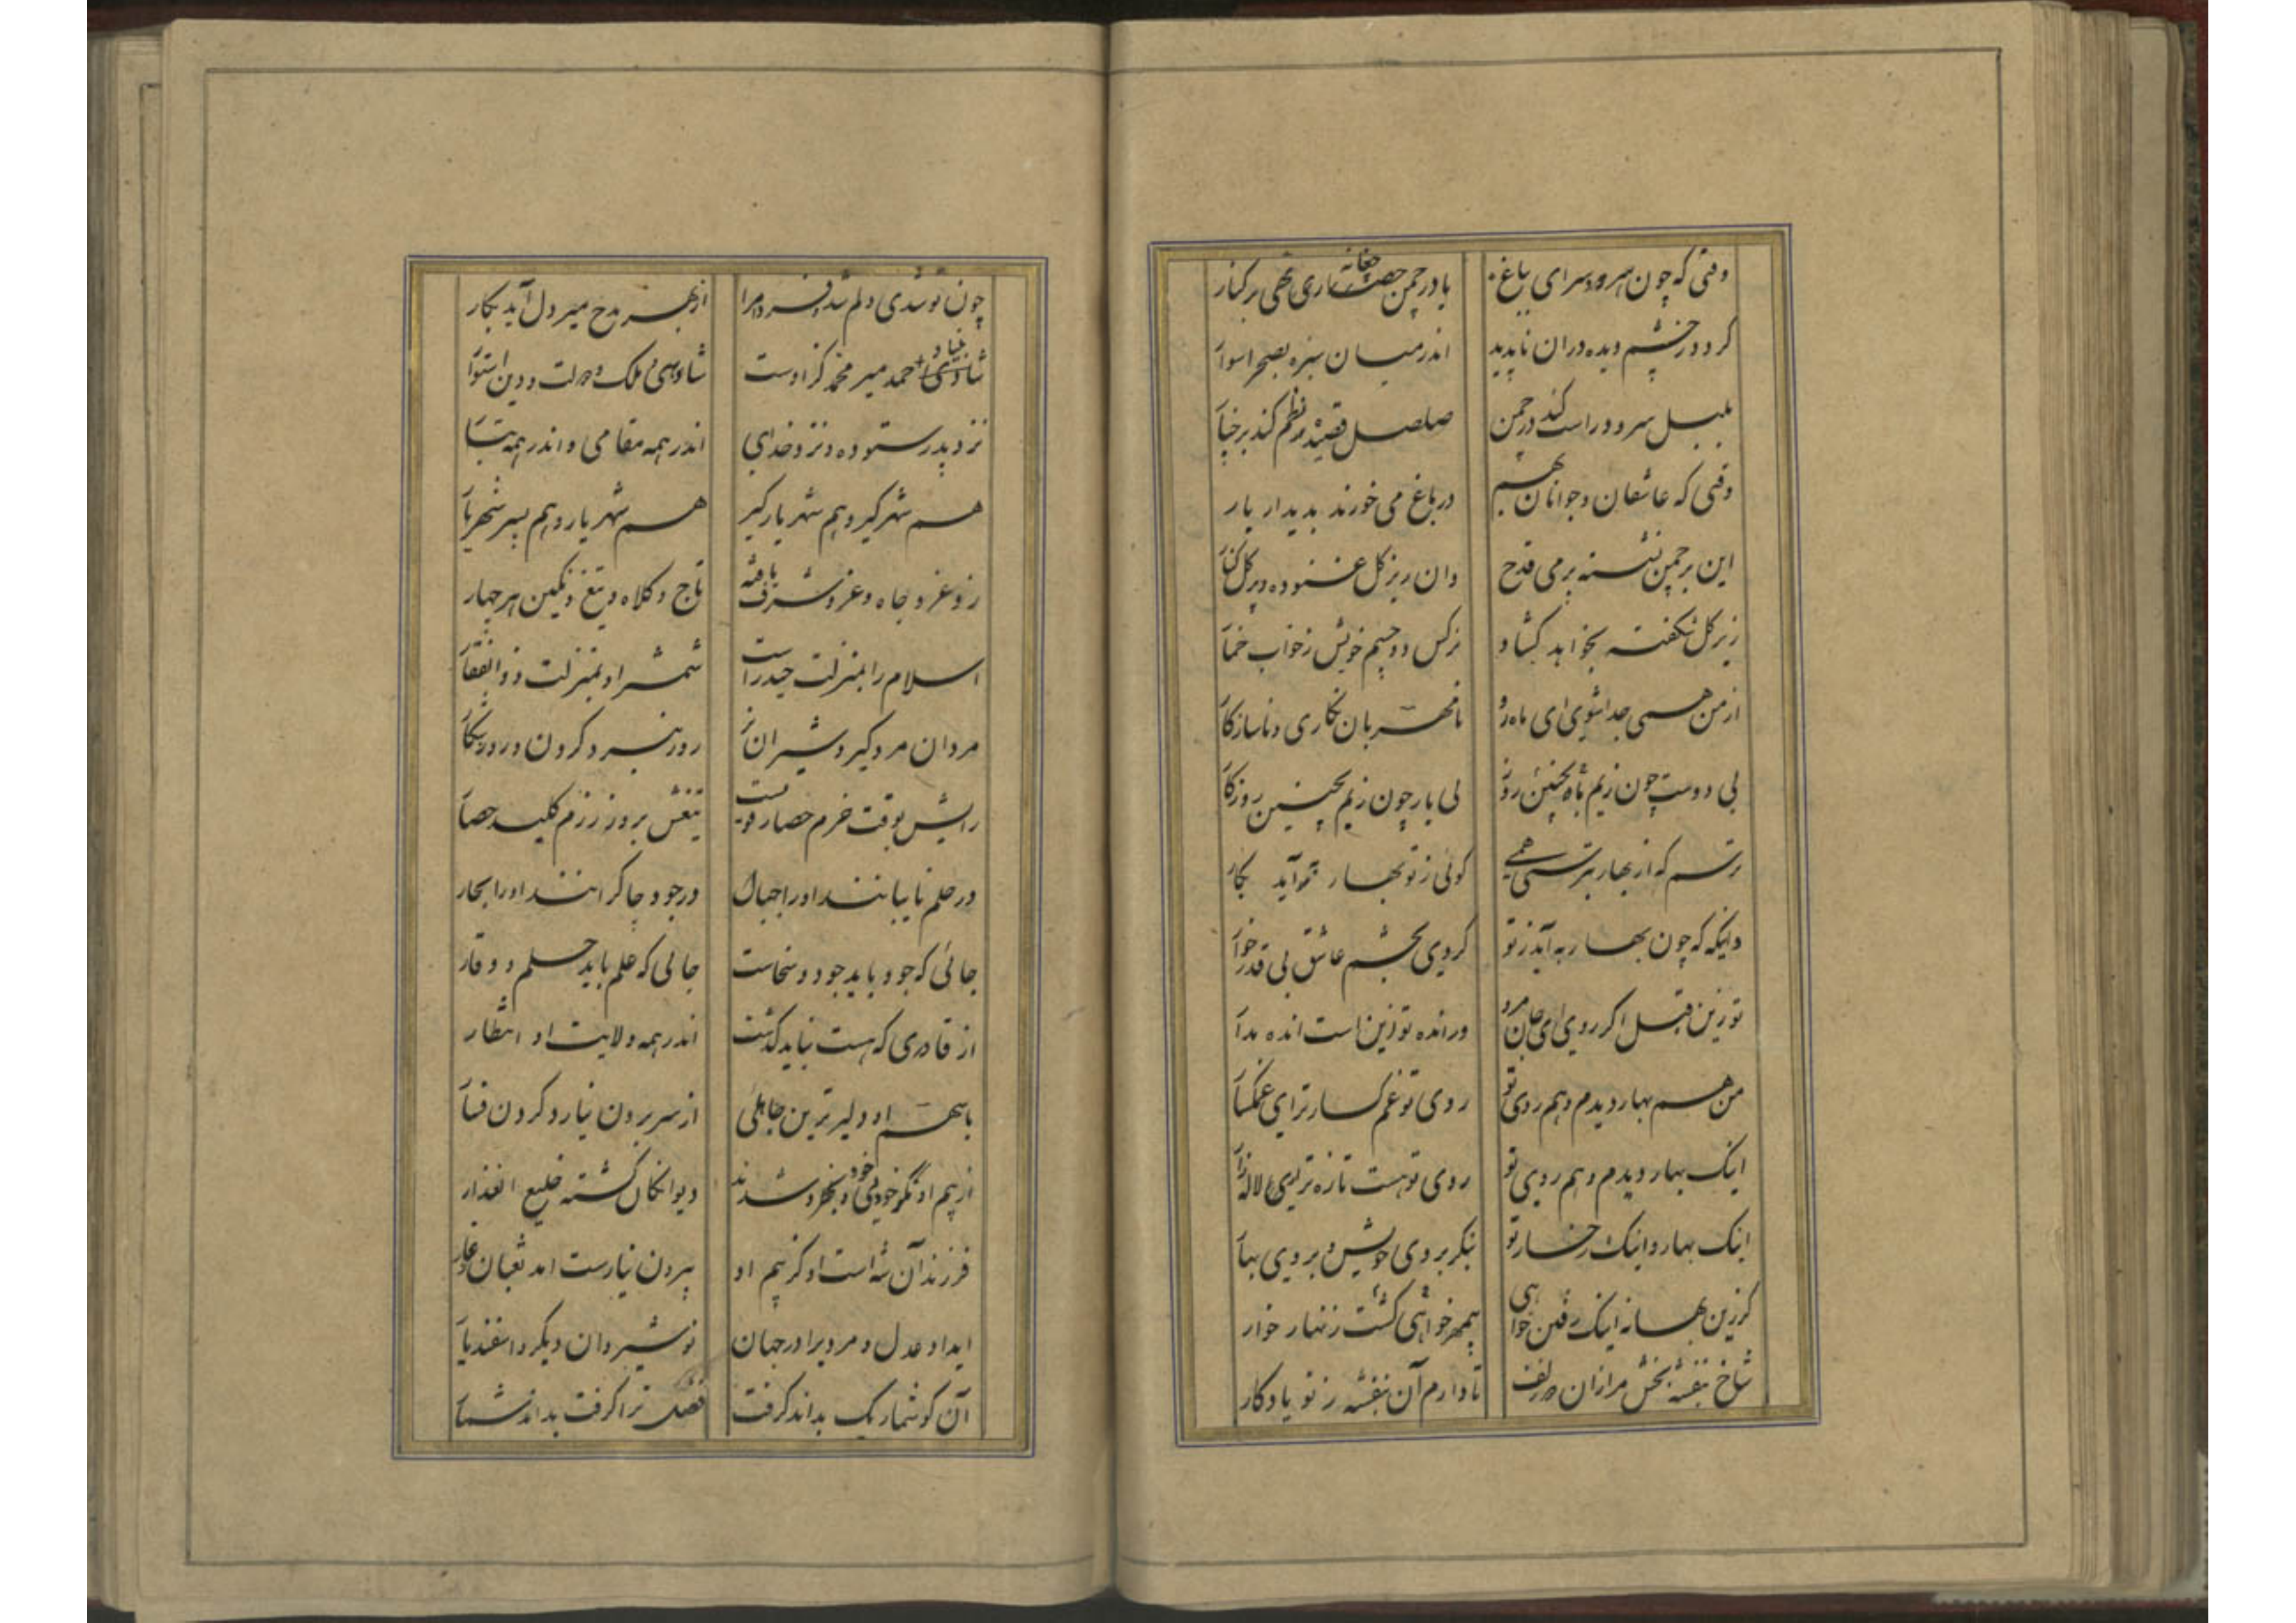 وقتی که چون سرو سرای بباغ
یا در چمن چغانه چماری نهی بر کنار
کرد و ز چشم دیده دران ناپدید
اندر میان سبزه بصحرا سوار
بلبل سرود راست کند در چمن
صلصل قصیده نظم کند بر چنار
وقتی که عاشقان و جوانان بهم
در باغ می خورند بدیدار یار
این بر چمن نشسته پر می قدح
وان زیر گل غنوده و پر گل کنار
زیر گل شکفته بخواهد گشاد
نرکس دو چشم خویش ز خواب خمار
از من همی جدا شوی ای ماه رو
نامهربان نکاری و ناسازکار
بی دوست چون زیم بچنین روز
بی یار چون زیم بچنین روزکار
ترسم که از بهار بترسی همی
کوئی ز نو بهار نو آید بکار
دانکه که چون بهار به آید ز تو
کردی بچشم عاشق بی قدر خوار
تو زین قبل اکر روی ای جان مرو
ور انده تو زین است انده مدار
من هم بهار دیدم و هم روی تو
روی تو غم کسار تر ای غمکسار
اینک بهار دیدم و هم روی تو
روی تو هست تازه تر ای لاله زار
اینک بهار و اینک رخسار تو
بنکر بروی خویش و بروی بهار
کر زین بهانه اینک رفتن خواهی
بیمهر خواهی کشت زنهار خوار
شاخ بنفشه بخش مرا زان دو زلف
تا دارم آن بنفشه ز تو یادکار
چون تو شدی دلم شد فرد مرا
از بهر مدح میر دل آید بکار
شاد احمد میر محمد کز اوست
شادی ملک و دولت و دین استوار
نزد پدر ستوده و نزد خدای
اندر همه مقامی و اندر همه تبار
هم شهر کیر و هم شهریار کیر
هم شهریار و هم پسر شهریار
زو عز و جاه و عز و شرف یافته
تاج و کلاه و تیغ و نکین هر چهار
اسلام را بمنزلت حیدر است
شمشیر او بمنزلت ذوالفقار
مردان مرد کیر و شیران نر
روز نبرد کردن و روز شکار
رایش بوقت حزم حصار قویست
تیغش بروز رزم کلید حصار
در حلم نایبانند او را جبال
در جود چاکرانند او را بحار
جائی که جود باید جود و سخاست
جائی که علم باید حلم و وقار
از قادری که هست نباید کذشت
اندر همه ولایت او انتظار
با سهم او دلیر ترین جاهلی
از سر برون نیارد کردن فسار
از بیم او نکر خود بی خود شدند
دیوانکان کشته خلیع العذار
فرزند آن شه است او کز بیم او
بیرون نیارست آمد ثعبان ز غار
ایداد عدل و مردیرا در جهان
نوشیروان دیکر و اسفندیار
آن کو شمار یک بداند کرفت
فضل ترا کرفت بداند شمار